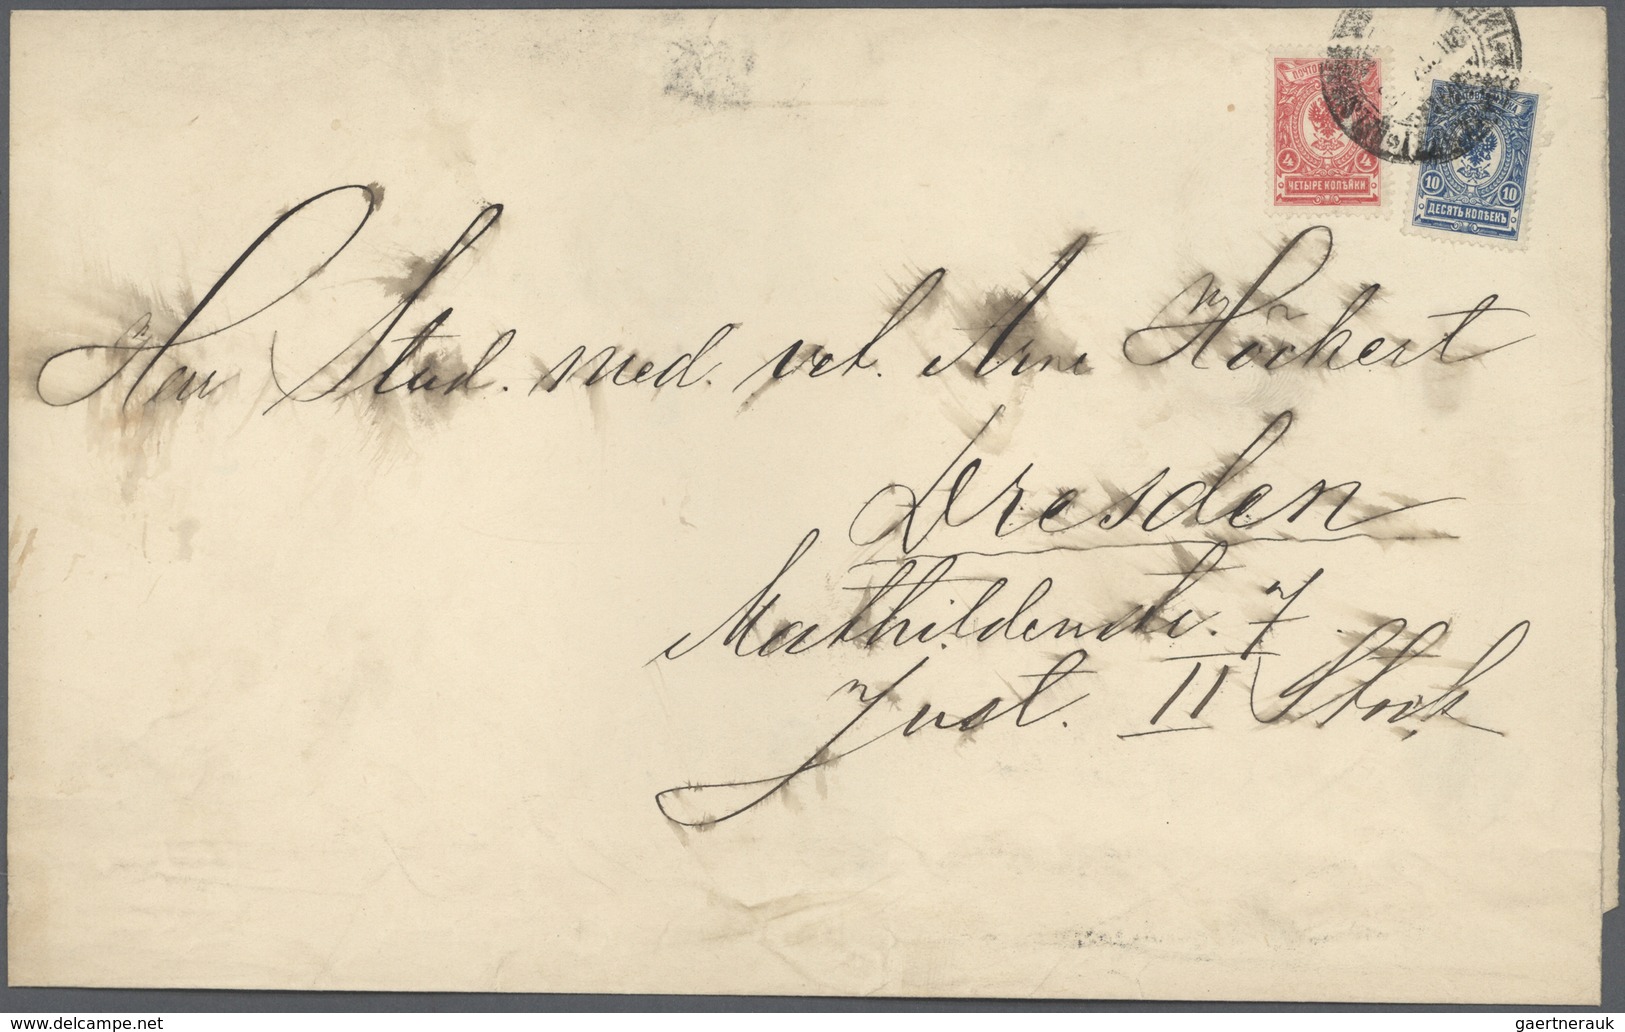 ПОЧТОВ
4 4
ЧЕТЫРЕ КОПѢЙКИ
10 10
ДЕСЯТЬ КОПѢЕКЪ
Herr Stud. med. vet. Arne Höckert
Dresden
Mathildenstr. 7
Just. II Stock
www.delcampe.net
gaertnerauk